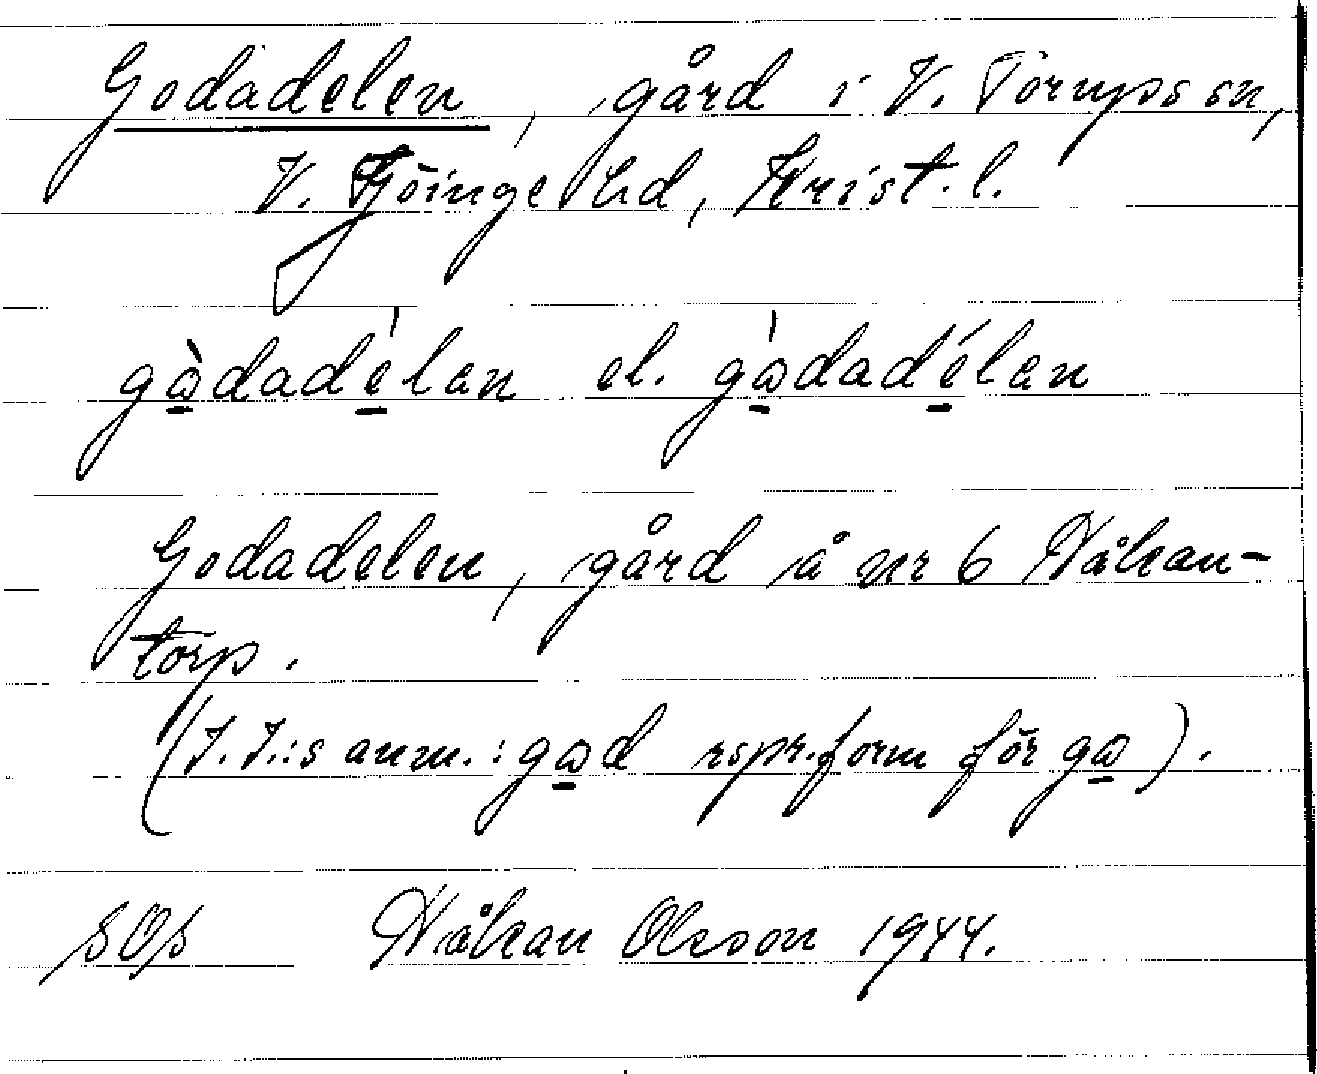 Godadelen, gård i V. Torups sn,
V. Göinge hd, Krist. l.
gòdadélan el. gòdadélan
Godadelen, gård å nr 6 Håkan-
torp.
(J. J.:s anm.: god rspr.form för go).
SOS Håkan Olsson 1944.